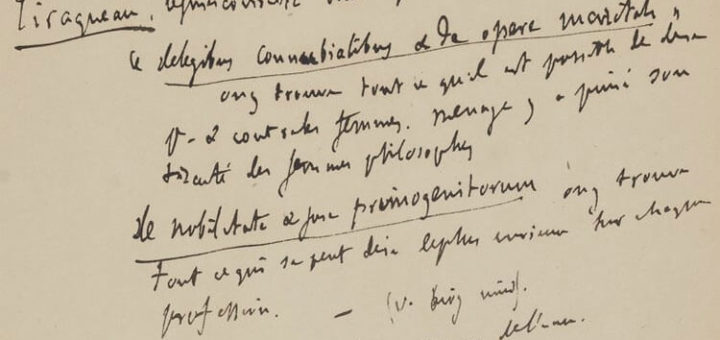 Tiraqueau,
« de legibus connubialibus & de opere maritali »
on y trouve tout ce qu'il est possible de dire
p. & contre les femmes. menage y a puisé son
traité des femmes philosophes
de nobilitate & jure primogenitorum on y trouve
tout ce qui se peut dire le plus curieux sur chaque
profession. — (v. biog univ).